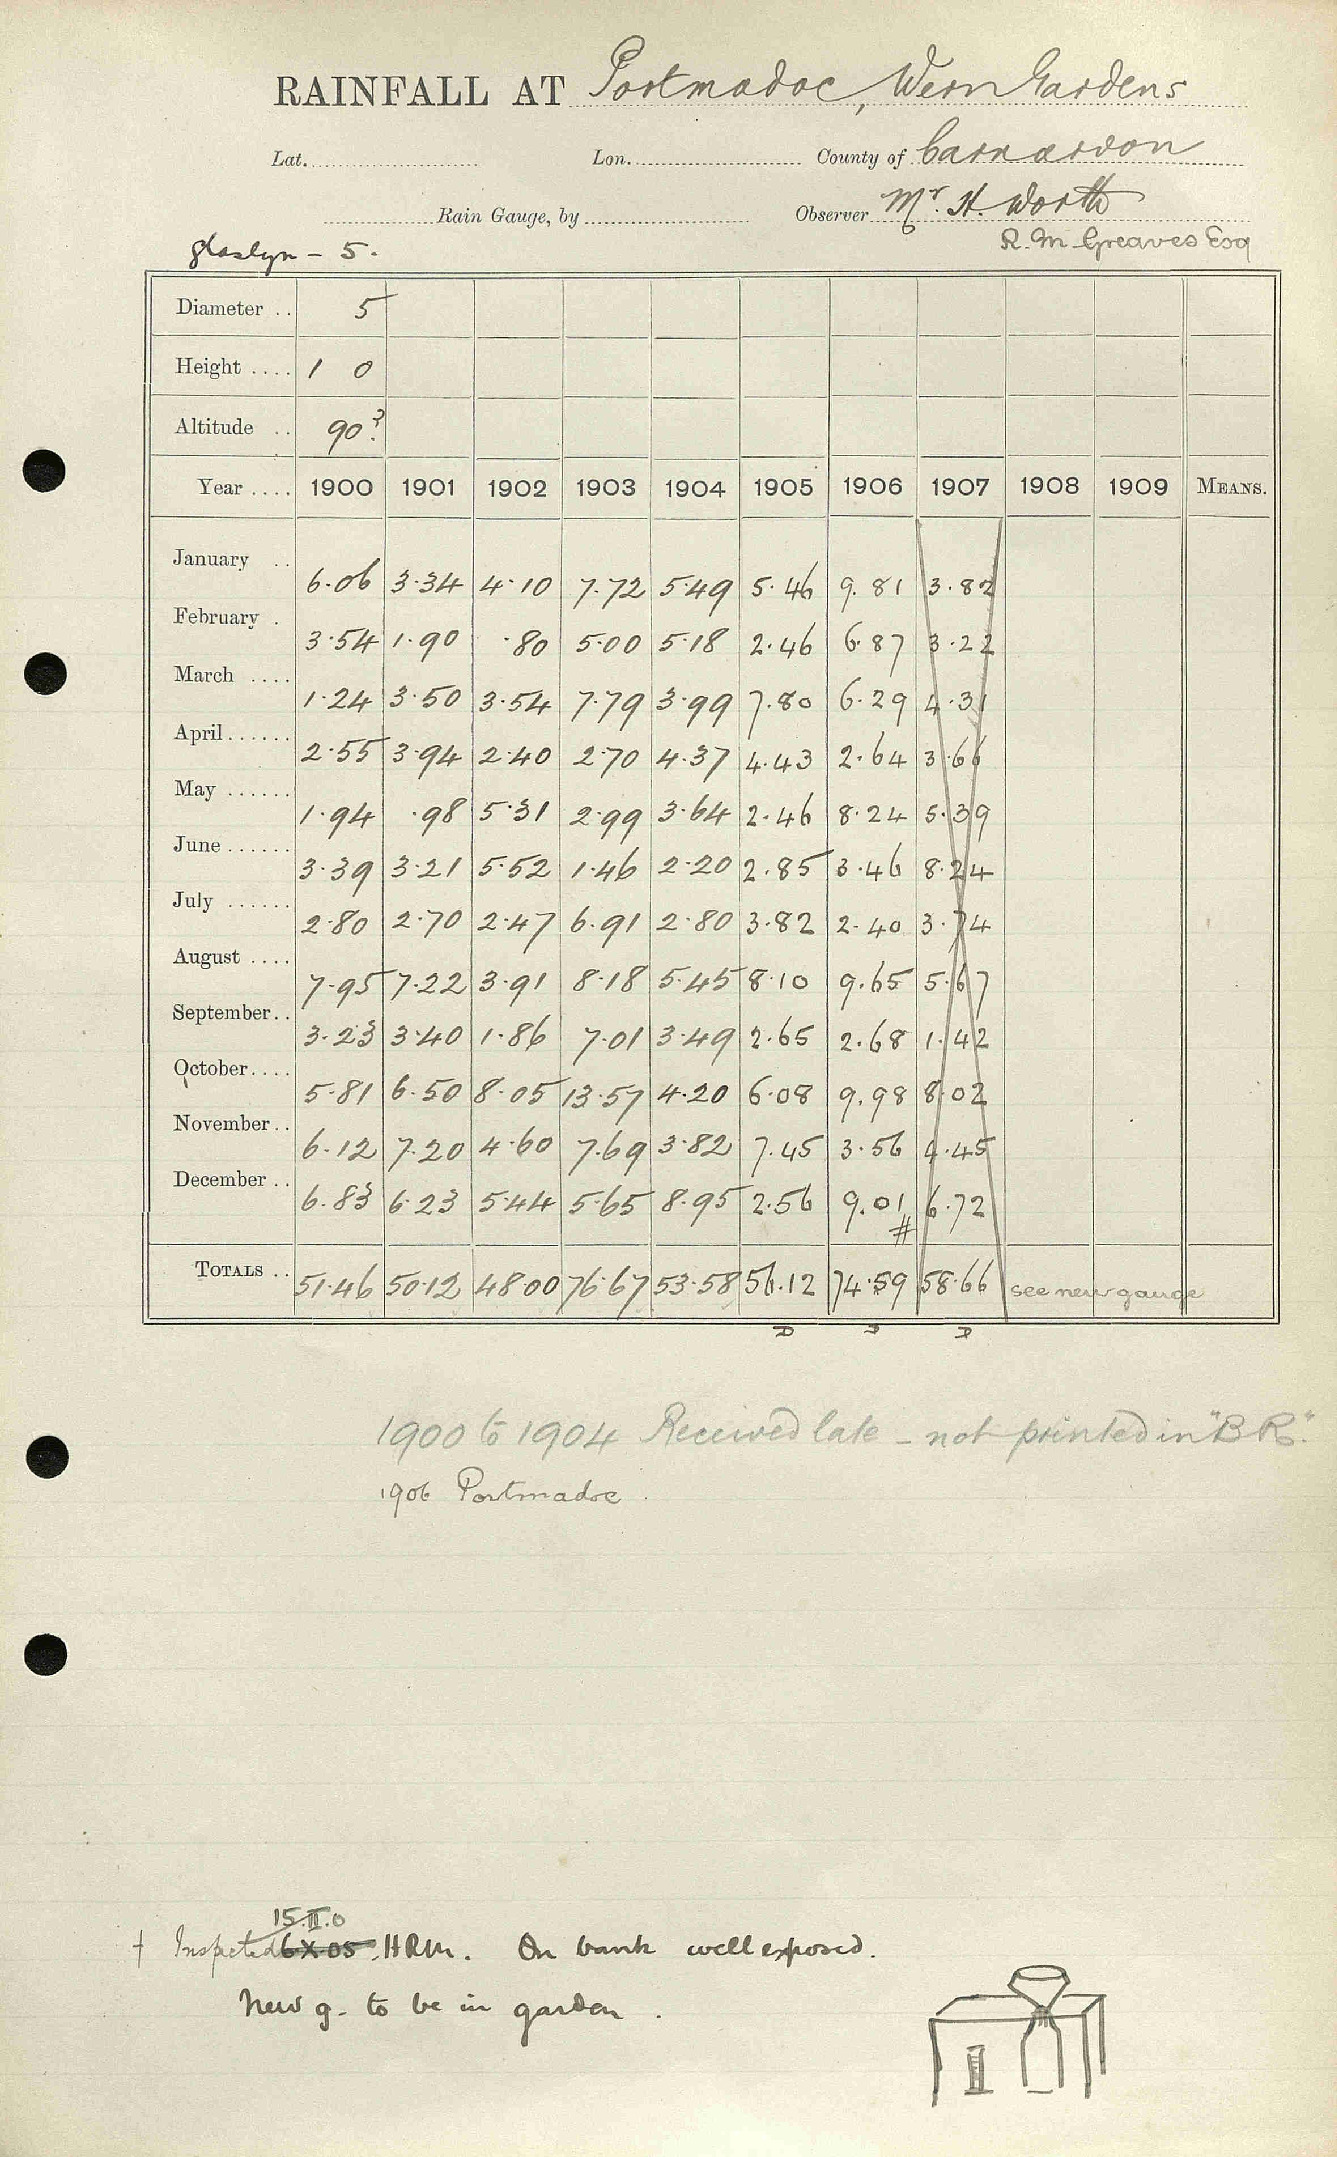 RAINFALL AT Portmadoc, Wern Gardens
Lat. Lon. County of Carnarvon
Rain Gauge, by Observer Mr. H. Worth
R. M. Greaves Esq
Glaslyn - 5.
Diameter .. 5
Height .... 1 0
Altitude .. 90?
Year .... 1900 1901 1902 1903 1904 1905 1906 1907 1908 1909 MEANS.
January .. 6.06 3.34 4.10 7.72 5.49 5.46 9.81 3.82
February . 3.54 1.90 .80 5.00 5.18 2.46 6.87 3.22
March .... 1.24 3.50 3.54 7.79 3.99 7.80 6.29 4.31
April...... 2.55 3.94 2.40 2.70 4.37 4.43 2.64 3.66
May ...... 1.94 .98 5.31 2.99 3.64 2.46 8.24 5.39
June ...... 3.39 3.21 5.52 1.46 2.20 2.85 3.46 8.24
July ...... 2.80 2.70 2.47 6.91 2.80 3.82 2.40 3.74
August .... 7.95 7.22 3.91 8.18 5.45 8.10 9.65 5.67
September.. 3.23 3.40 1.86 7.01 3.49 2.65 2.68 1.42
October.... 5.81 6.50 8.05 13.57 4.20 6.08 9.98 8.02
November.. 6.12 7.20 4.60 7.69 3.82 7.45 3.56 4.45
December .. 6.83 6.23 5.44 5.65 8.95 2.56 9.01 6.72
#
TOTALS .. 51.46 50.12 48.00 76.67 53.58 56.12 74.59 58.66 see new gauge
D D D
1900 to 1904 Received late - not printed in "B R".
1906 Portmadoc.
15.II.0
† Inspected 6 X 05. HRM. On bank well exposed.
New g. to be in garden.